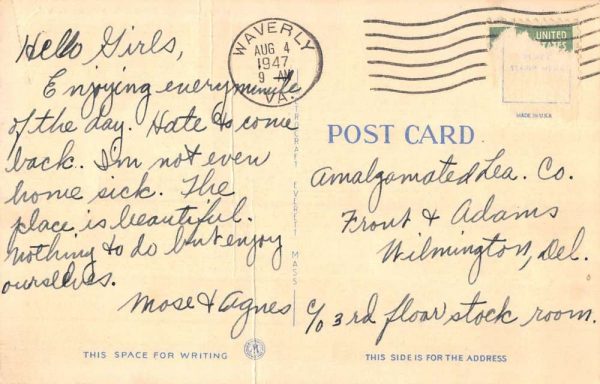 Hello Girls,
Enjoying every minute
of the day. Hate to come
back. I'm not even
home sick. The
place is beautiful.
Nothing to do but enjoy
ourselves.
Mose & Agnes
WAVERLY
AUG 4
1947
9 AM
VA.
UNITED
MADE IN U.S.A.
POST CARD
METROCRAFT EVERETT MASS
Amalgamated Lea. Co.
Front & Adams
Wilmington, Del.
c/o 3rd floor stock room.
THIS SPACE FOR WRITING
THIS SIDE IS FOR THE ADDRESS